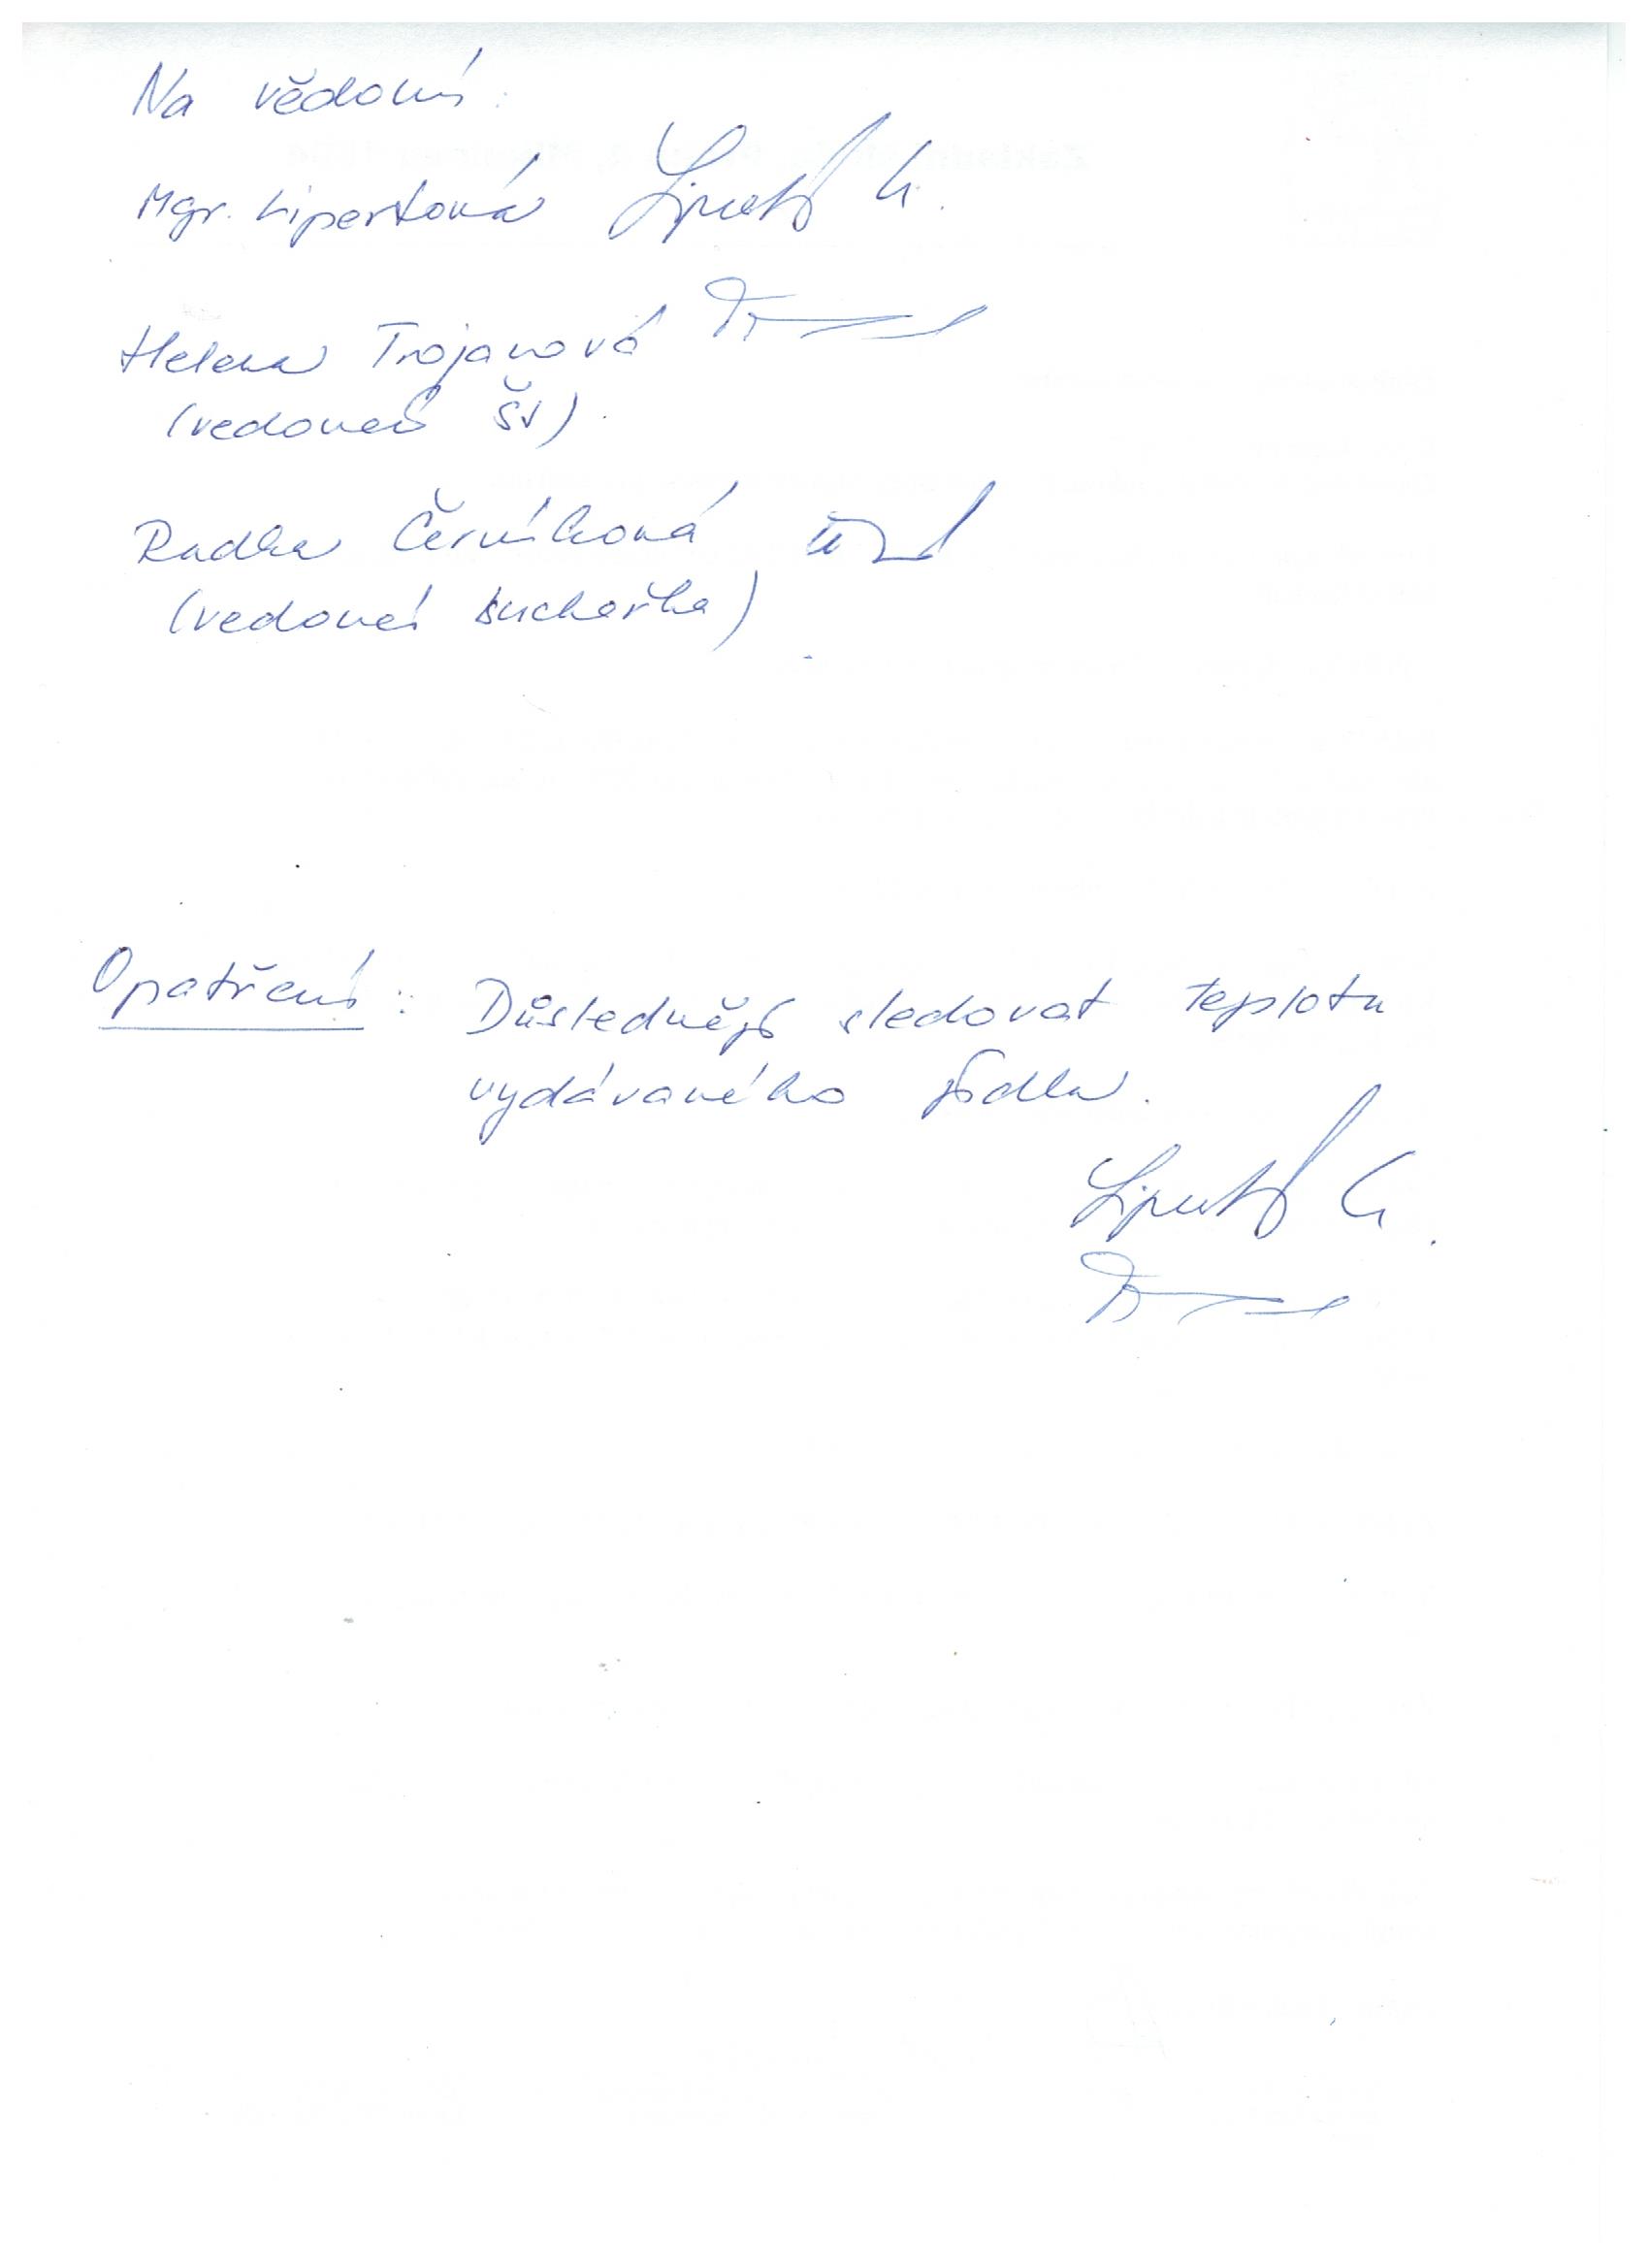 Na vědomí:
Mgr. Lipertová
Helena Trojanová
(vedoucí ŠJ)
Radka Černíková
(vedoucí kuchařka)
Opatření: Důslednější sledovat teplotu
vydávaného jídla.